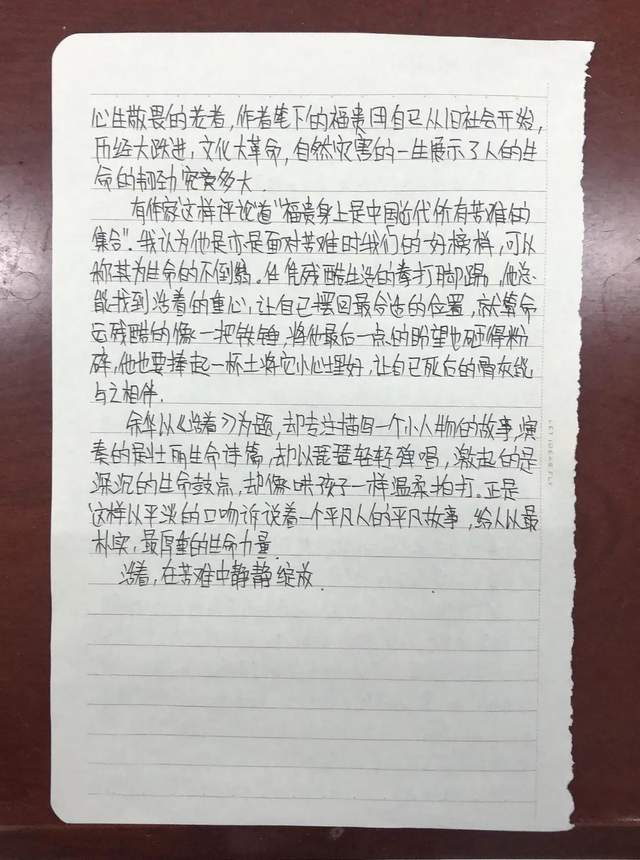 心生敬畏的老者，作者笔下的福贵用自己从旧社会开始，
历经大跃进，文化大革命，自然灾害的一生展示了人的生
命的韧劲究竟多大．
有作家这样评论道"福贵身上是中国近代所有苦难的
集合"．我认为他是亦是面对苦难时我们的好榜样，可以
称其为生命的不倒翁。任凭残酷生活的拳打脚踢，他总
能找到活着的重心，让自己摆回最合适的位置，就算命
运残酷的像一把铁锤，将他最后一点的盼望也砸得粉
碎，他也要捧起一杯土将它小心埋好，让自己死后的骨灰能
与之相伴．
余华以《活着》为题，却专注描写一个小人物的故事，演
奏的是壮丽生命诗篇，却以琵琶轻轻弹唱，激起的是
深沉的生命鼓点，却像哄孩子一样温柔拍打。正是
这样以平淡的口吻诉说着一个平凡人的平凡故事，给人以最
朴实，最厚重的生命力量．
活着，在苦难中静静绽放．